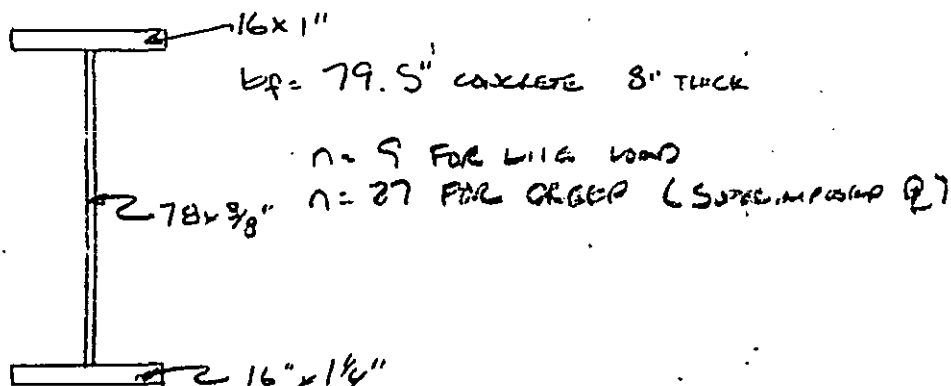 16 x 1"
bf = 79.5" CONCRETE 8" THICK
n = 9 FOR LIVE LOAD
n = 27 FOR CREEP (SUPERIMPOSED
78 x 3/8"
16" x 1 1/4"